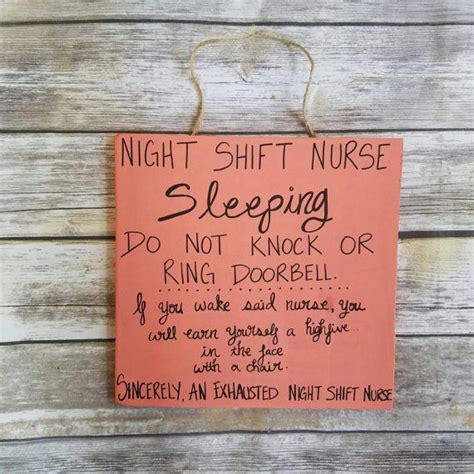 NIGHT SHIFT NURSE
Sleeping
DO NOT KNOCK OR
RING DOORBELL.
If you wake said nurse, you
will earn yourself a highfive...
in the face
with a chair.
SINCERELY, AN EXHAUSTED NIGHT SHIFT NURSE